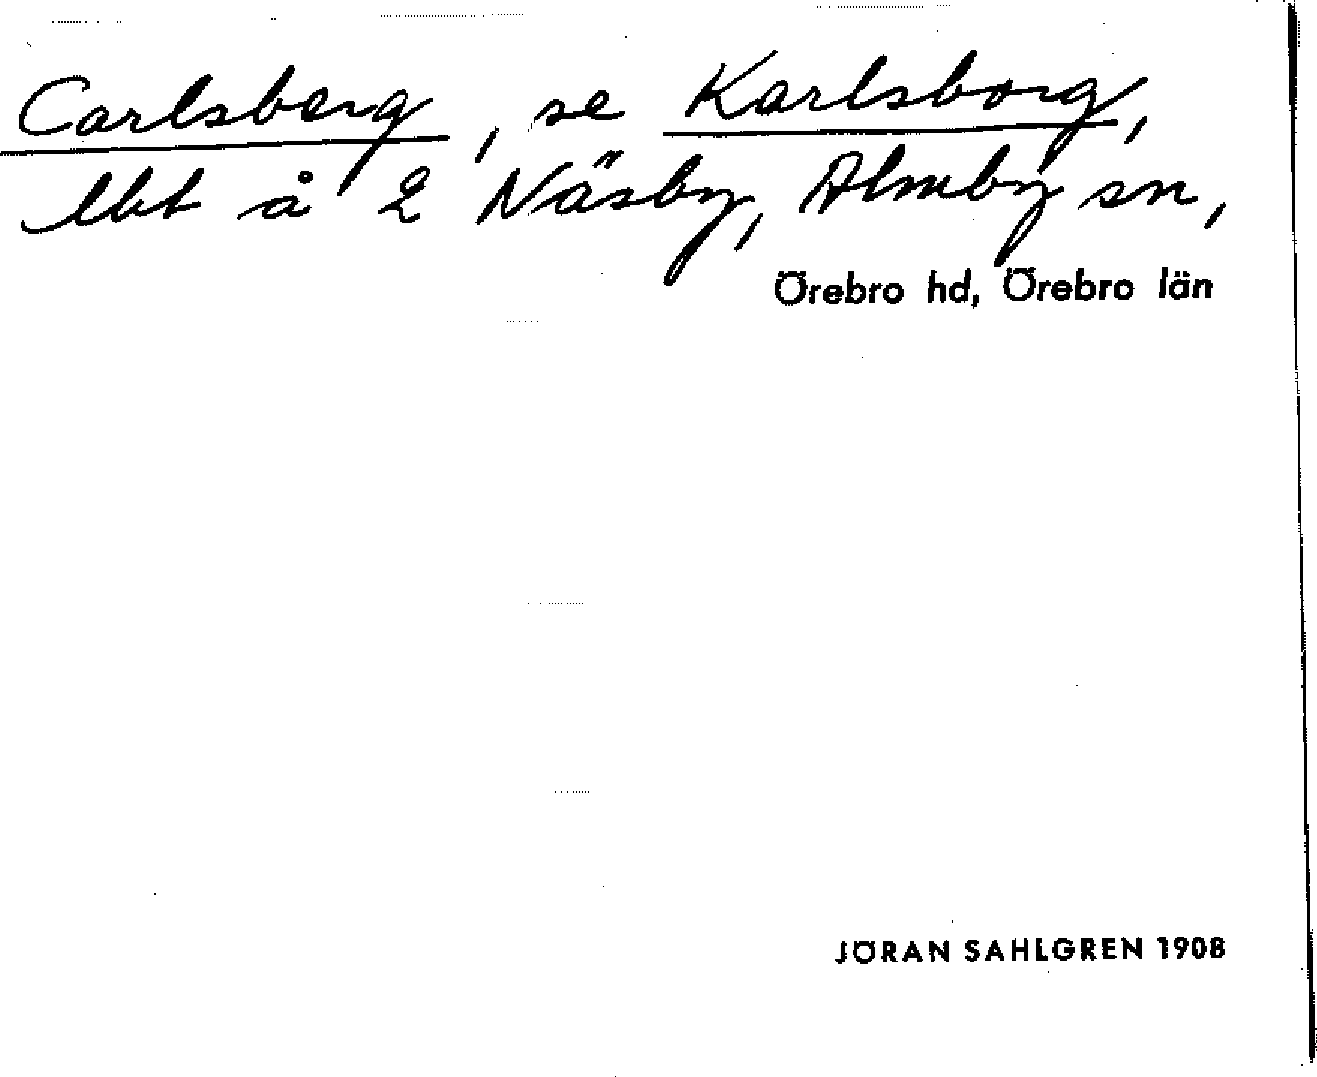 Carlsberg, se Karlsborg,
lht å 2 Näsby, Almby sn,
Örebro hd, Örebro län
JÖRAN SAHLGREN 1908